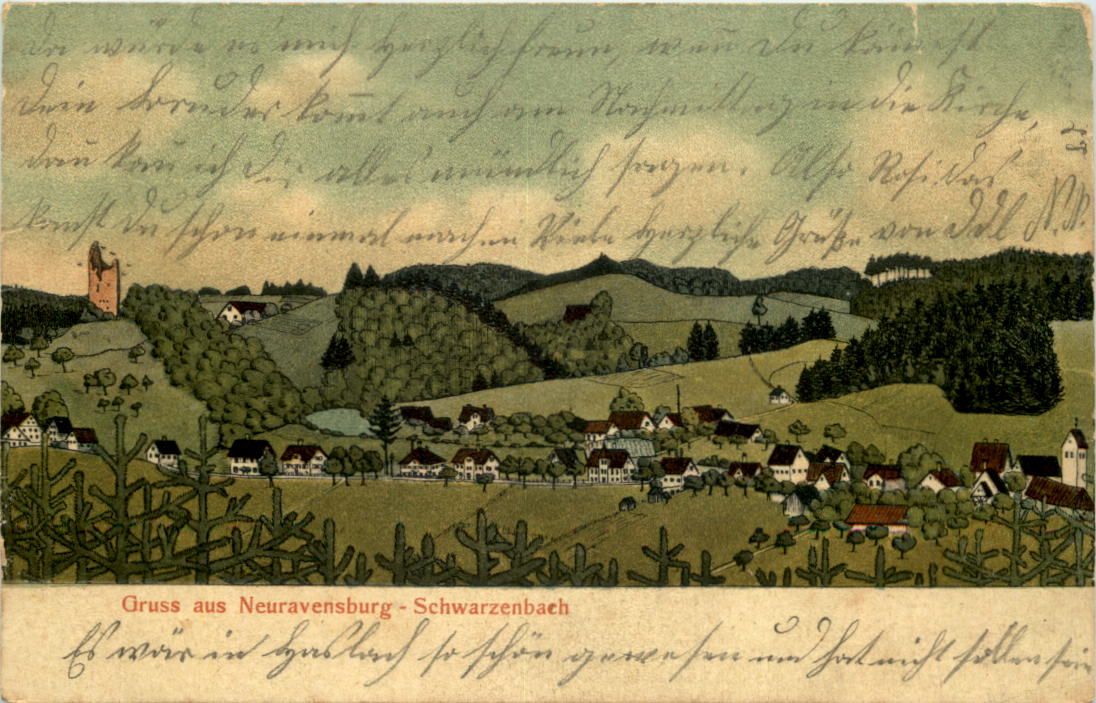 da würde es mich herzlich freun, wen̄ Du kämest
Dein Bruder kom̄t auch am Nachmittag in die Kirche,
dan̄ kan̄ ich Dir alles mündlich sagen. Also Rosi das
kan̄st Du schon einmal machen Viele herzliche Grüße von Ddl N.N.
Gruss aus Neuravensburg - Schwarzenbach
Es wär in Haslach so schön gewesen und hat nicht sollen sein